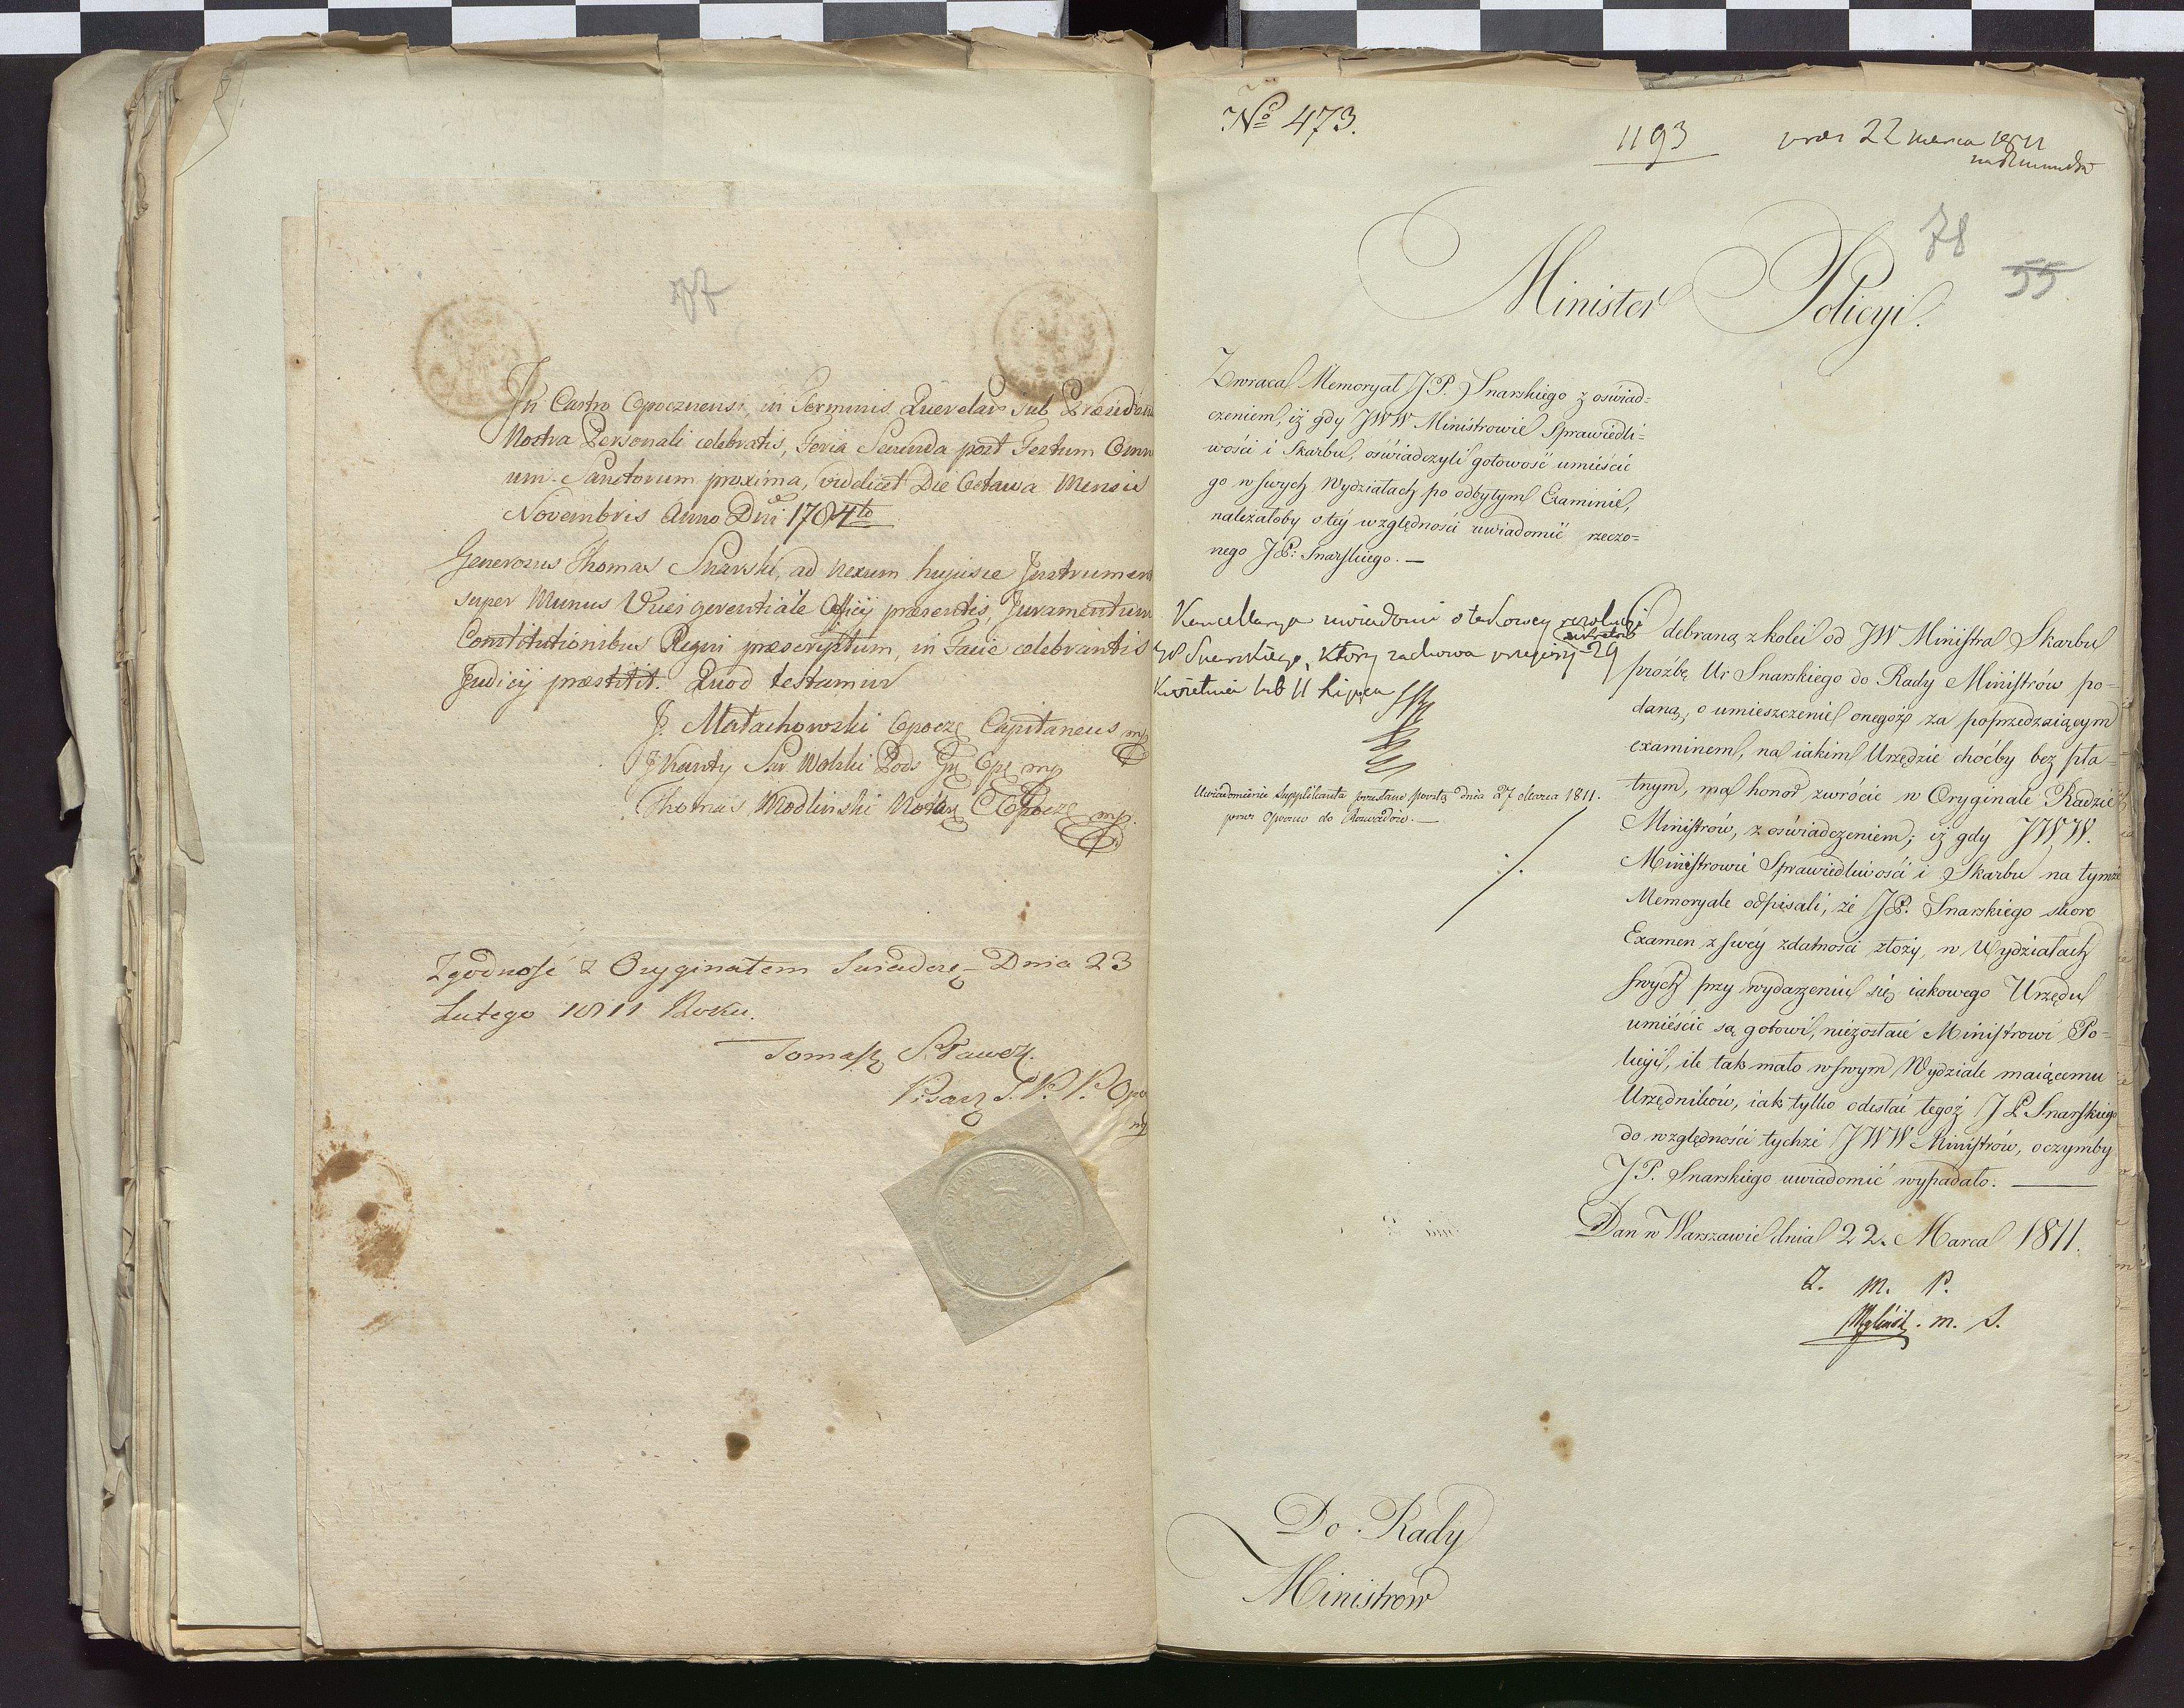 77
In Castro Opocznensi, in Terminis Querelar Sub Præsiden
Nostra Personali celebratis, Feria Secunda post Festum Omn
um Sanctorum proxima, videlicet Die Octava Mensis
Novembris Anno Dni 1784to
Generosus Thomas Snarski, ad nexum hujusce Instrumen
super Munus Vices gerentiale Officij præsentis, Juramentum
Constitutionibus Regni præscriptum, in Facie celebrantis
Judicij præstitit. Quod testamur
J. Małachowski Opocz Capitaneus mp
JKanty Wolski Pods Gr Op mp
Thomas Modlinski Notar C Opocz mp.
Zgodność z Oryginałem Swiadczę Dnia 23
Lutego 1811 Roku.
Tomasz
Pisarz S. P. P. Opo
mp
No 473.
1193
pras 22 marca 1811
78
55
Minister Policyi.
Zwraca Memoryał JP. Snarskiego z oświad=
czeniem, iż gdy JWW Ministrowie Sprawiedli=
wości i Skarbu, oświadczyli gotowość umieścić
go w swych Wydziałach po odbytym Examinie,
należałoby o tey względności uwiadomić rzeczo=
nego JP: Snarskiego. —
Kancellarya uwiadomi o takowey rezolucyi
W Snarskiego, który zachowa przepisy 29
Kwietnia lub 11 Lipca
Uwiadomienie Supplikanta przesłane pocztą dnia 27 Marca 1811.
przez Opoczno do
Odebraną z kolei od JW Ministra Skarbu
prożbę Ur Snarskiego do Rady Ministrów po=
daną, o umieszczenie onegoż za poprzedzaiącym
examinem, na iakim Urzędzie choćby bez pła=
tnym, ma honor zwrócić w Oryginale Radzie
Ministrów, z oświadczeniem; iż gdy JW,W.
Ministrowie Sprawiedliwości i Skarbu na tymże
Memoryale odpisali, że JP. Snarskiego skoro
Examen z swey zdatności złoży, w Wydziałach
swych przy wydarzeniu się iakowego Urzędu
umieścić są gotowi, niezostaie Ministrowi Po=
licyi, ile tak mało w swym Wydziale maiącemu
Urzędników, iak tylko odesłać tegoż JP Snarskiego
do względności tychże JWW Ministrów, o czymby
JP. Snarskiego uwiadomić wypadało. —
Dan w Warszawie dnia 22. Marca 1811.
Z. M. P.
m. S.
Do Rady
Ministrów